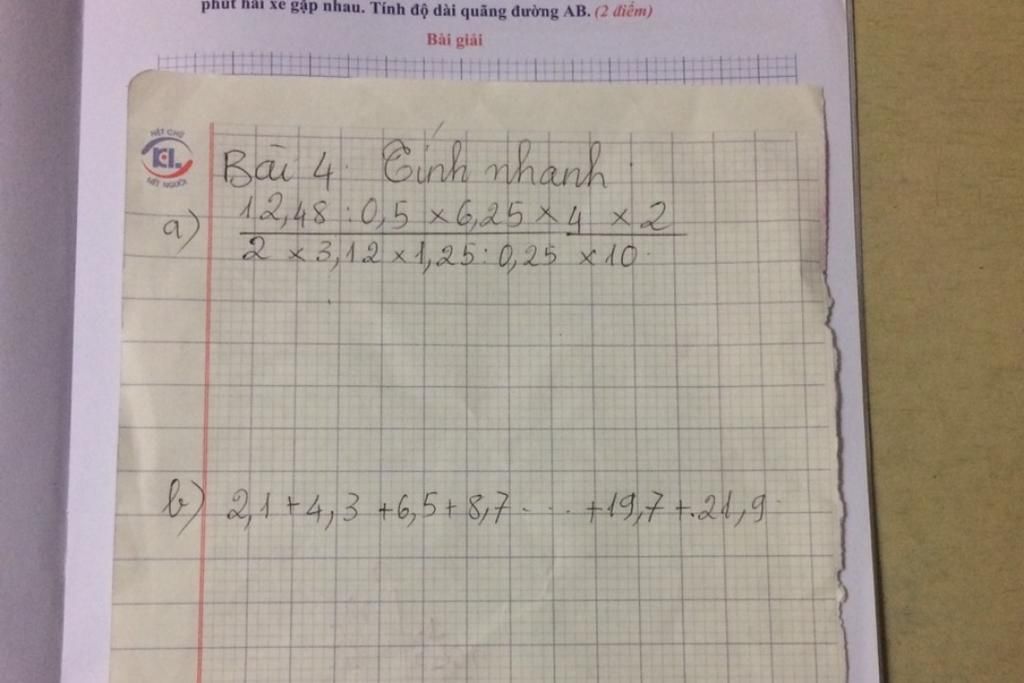 phút hai xe gặp nhau. Tính độ dài quãng đường AB. (2 điểm)
Bài giải
NÉT CHỮ
KL
NẾT NGƯỜI
Bài 4. Tính nhanh
a) 12,48 : 0,5 × 6,25 × 4 × 2
2 × 3,12 × 1,25 : 0,25 × 10
b) 2,1 + 4,3 + 6,5 + 8,7 ... + 19,7 + 21,9